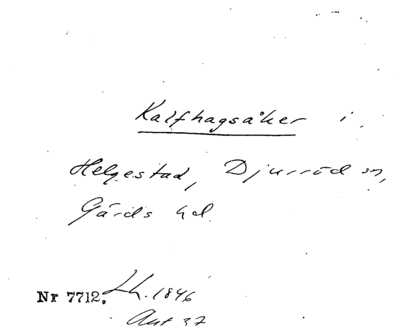 Kalfhagsåker i
Helgestad, Djurröd sn,
Gärds hd
Nr 7712. Lh. 1846
Akt 37